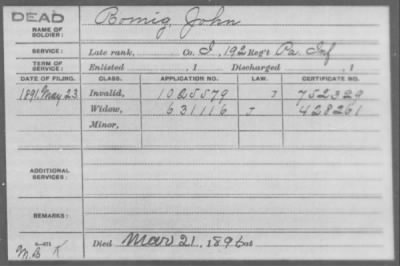 DEAD
NAME OF SOLDIER: Romig, John
SERVICE: Late rank, Co. I, 192 Reg't Pa. Inf
TERM OF SERVICE: Enlisted , 1 Discharged , 1
DATE OF FILING. CLASS. APPLICATION NO. LAW. CERTIFICATE NO.
1891. May 23 Invalid, 1025579 J 752329
Widow, 631116 J 428261
Minor,
ADDITIONAL SERVICES:
REMARKS:
Died Mar 21, 1896 at